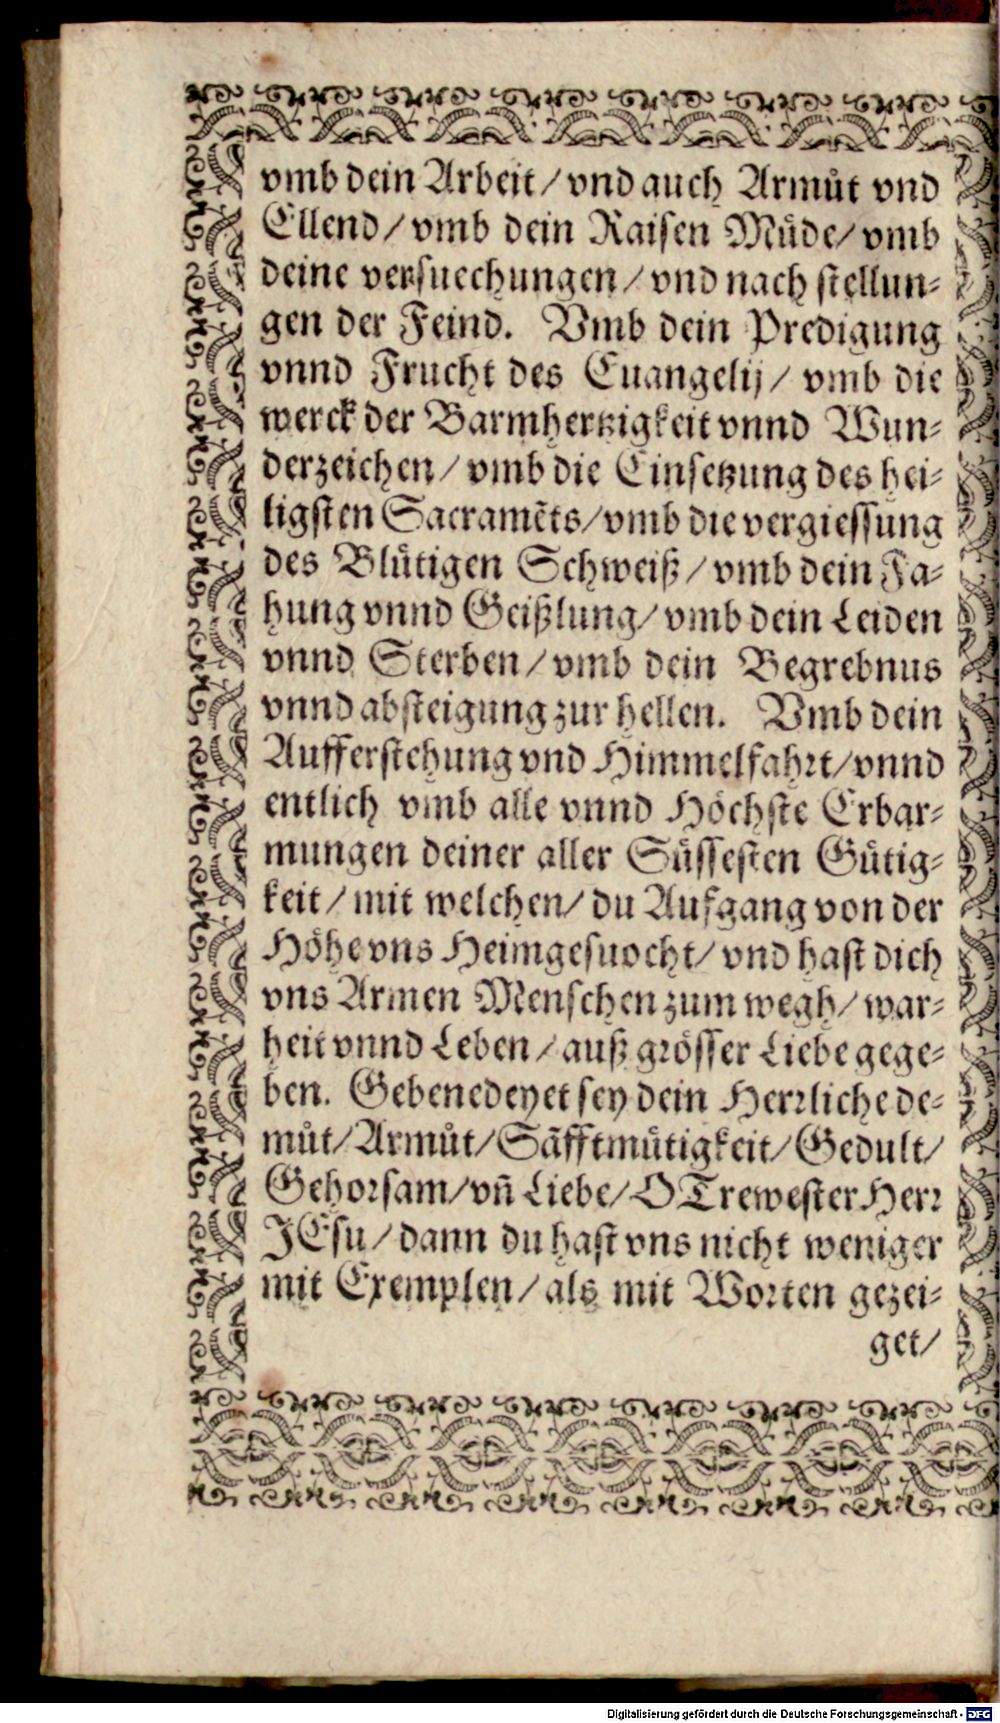 vmb dein Arbeit/ vnd auch Armuͦt vnd
Ellend/ vmb dein Raisen Muͤde/ vmb
deine versuechungen/ vnd nach stellun⸗
gen der Feind. Vmb dein Predigung
vnnd Frucht des Euangelij/ vmb die
werck der Barmhertzigkeit vnnd Wun⸗
derzeichen/ vmb die Einsetzung des hei⸗
ligsten Sacramẽts/ vmb die vergiessung
des Bluͤtigen Schweiß/ vmb dein Fa⸗
hung vnnd Geißlung/ vmb dein Leiden
vnnd Sterben/ vmb dein Begrebnus
vnnd absteigung zur hellen. Vmb dein
Aufferstehung vnd Himmelfahrt/ vnnd
entlich vmb alle vnnd Hoͤchste Erbar⸗
mungen deiner aller Suͤssesten Guͤtig⸗
keit/ mit welchen/ du Aufgang von der
Hoͤhe vns Heimgesuocht/ vnd hast dich
vns Armen Menschen zum wegh/ war⸗
heit vnnd Leben/ auß groͤsser Liebe gege⸗
ben. Gebenedeyet sey dein Herrliche de⸗
muͦt/ Armuͦt/ Sãfftmuͤtigkeit/ Gedult/
Gehorsam/ vñ Liebe/ O Trewester Herr
JEsu/ dann du hast vns nicht weniger
mit Exemplen/ als mit Worten gezei⸗
get/
Digitalisierung gefördert durch die Deutsche Forschungsgemeinschaft - DFG